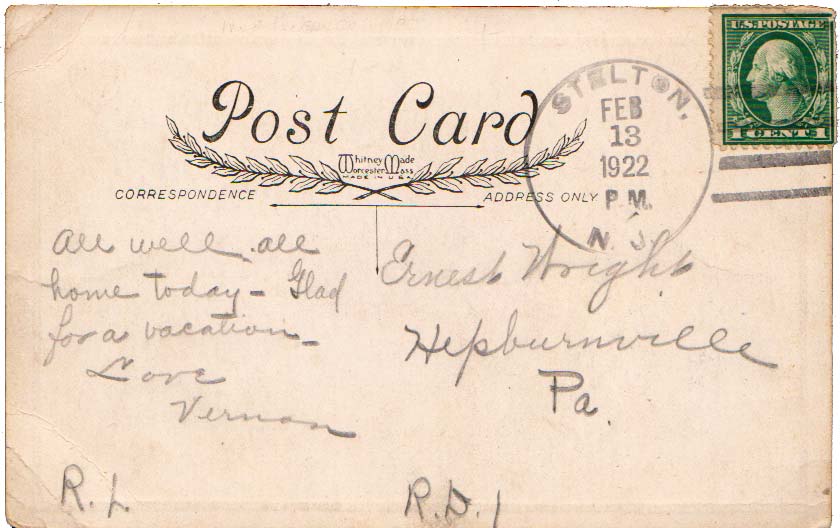 U.S. POSTAGE
1 CENT 1
STELTON,
FEB
13
1922
P.M.
N. J.
Post Card
Whitney Made
Worcester Mass
MADE IN U.S.A.
CORRESPONDENCE
ADDRESS ONLY
All well all
home today – Glad
for a vacation –
Love
Vernon
R. 1.
Ernest Wright
Hepburnville
Pa.
R.D. 1